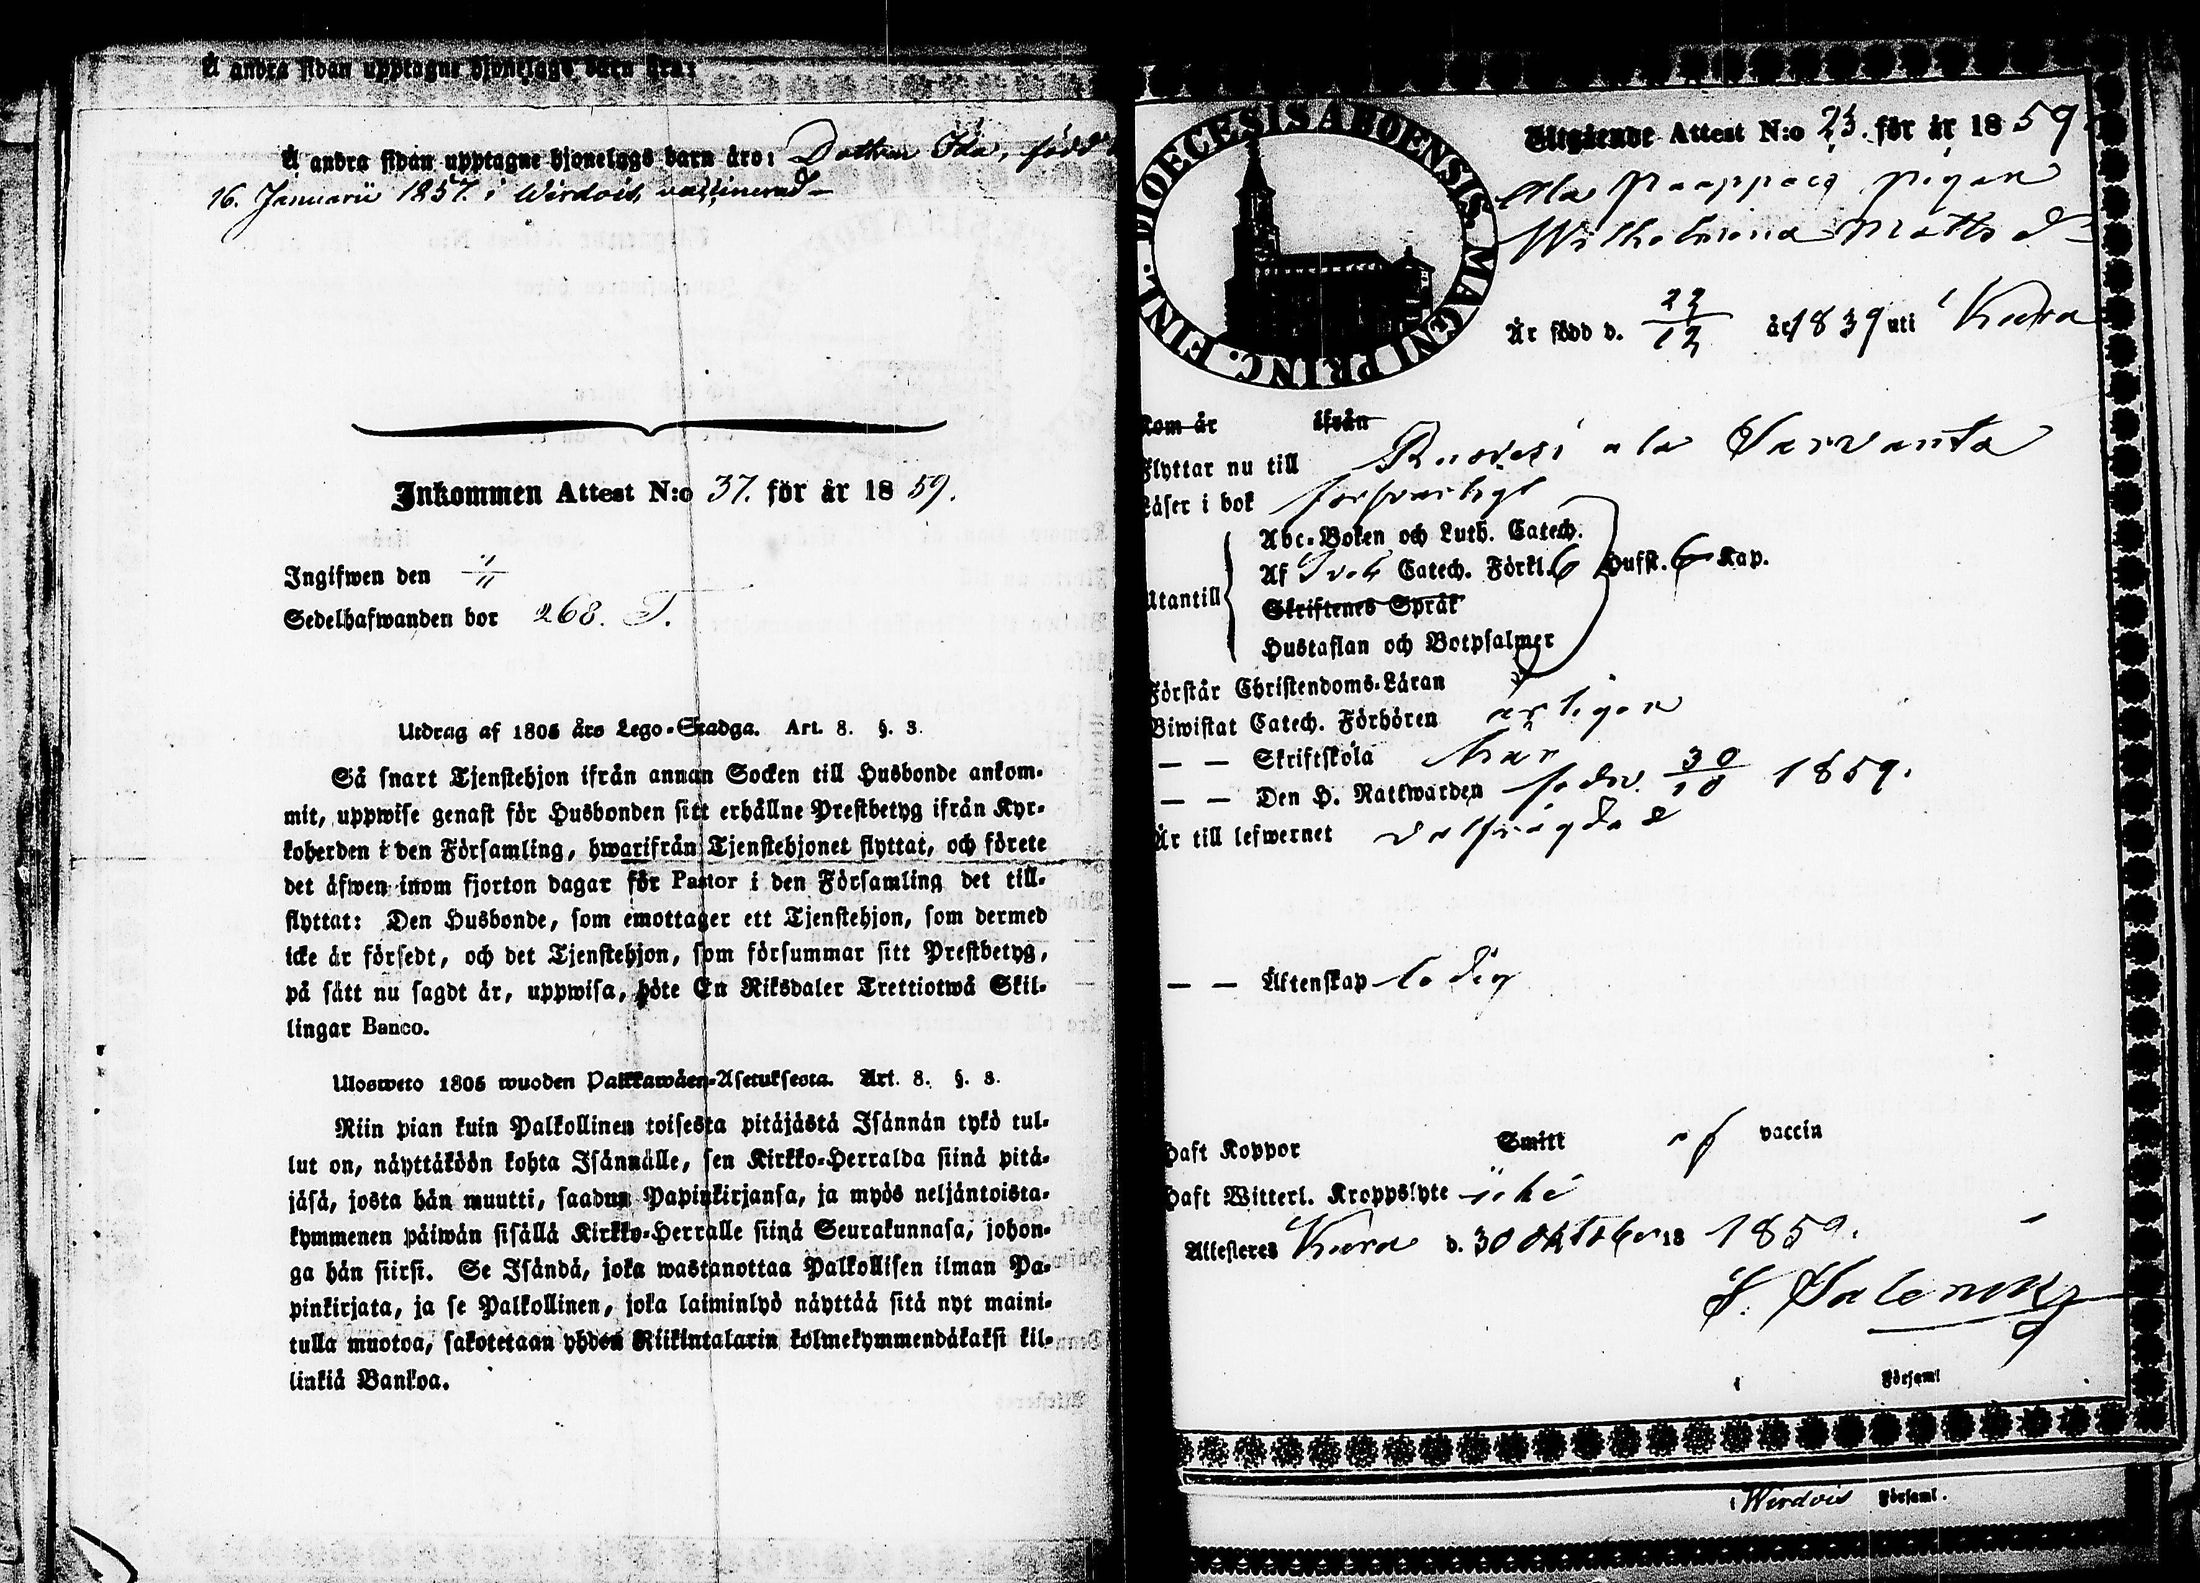 Å andra sidan upptagne hjonelags barn äro:
Å andra sidan upptagne hjonelags barn äro: Dottren Ida, född
16. Januarii 1857. i Wirdois, vaccinerad
Inkommen Attest N:o 37. för år 18 59.
Ingifwen den 1/11
Sedelhafwanden bor 268. T.
Utdrag af 1805 års Lego-Stadga. Art. 8. §. 3.
Så snart Tjenstehjon ifrån annan Socken till Husbonde ankom-
mit, uppwise genast för Husbonden sitt erhållne Prestbetyg ifrån Kyr-
koherden i den Församling, hwarifrån Tjenstehjonet flyttat, och förete
det äfwen inom fjorton dagar för Pastor i den Församling det till-
flyttat: Den Husbonde, som emottager ett Tjenstehjon, som dermed
icke är försedt, och det Tjenstehjon, som försummar sitt Prestbetyg,
på sätt nu sagdt är, uppwisa, böte En Riksdaler Trettiotwå Skil-
lingar Banco.
Ulosweto 1805 wuoden Palkkawäen-Asetuksesta. Art. 8. §. 3.
Niin pian kuin Palkollinen toisesta pitäjästä Isännän tykö tul-
lut on, näyttäköön kohta Isännälle, sen Kirkko-Herralda siinä pitä-
jäsä, josta hän muutti, saadun Papinkirjansa, ja myös neljäntoista-
kymmenen päiwän sisällä Kirkko-Herralle siinä Seurakunnasa, johon-
ga hän siirsi. Se Isändä, joka wastanottaa Palkollisen ilman Pa-
pinkirjata, ja se Palkollinen, joka laiminlyö näyttää sitä nyt maini-
tulla muotoa, sakotetaan yhden Riikintalarin kolmekymmendäkaksi kil-
linkiä Bankoa.
DIOECESIS ABOENSIS MAGNI PRINC. FINL.
Utgående Attest N:o 23. för år 18 59.
Ala Paappais pigan
Wilhelmina Matts dr
Är född d. 22/12 år 1839 uti Kura
Kom år ifrån
Flyttar nu till Ruovesi ala Sarvanta
Läser i bok försvarligt
Abc-Boken och Luth. Catech.
Af Sveb Catech. Förkl. 6 Hufst. 6 Kap.
Utantill
Skriftenes Språk
Hustaflan och Botpsalmer
Förstår Christendoms-Läran
Biwistat Catech. Förhören årligen
— — Skriftskola här
— — Den H. Nattwarden sedn. 30/10 1859.
Är till lefwernet välfrägdad
— — Äktenskap ledig
Haft Koppor Smitt af vaccin
Haft Witterl. Kroppslyte icke
Attesteres Kura d. 30 Oktober 18 1859.
Församl
i Wirdois Församl.